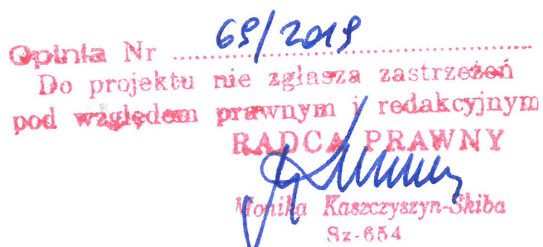 Opinia Nr 69/2019
Do projektu nie zgłasza zastrzeżeń
pod względem prawnym i redakcyjnym
RADCA PRAWNY
Monika Kaszczyszyn-Skiba
Sz-654